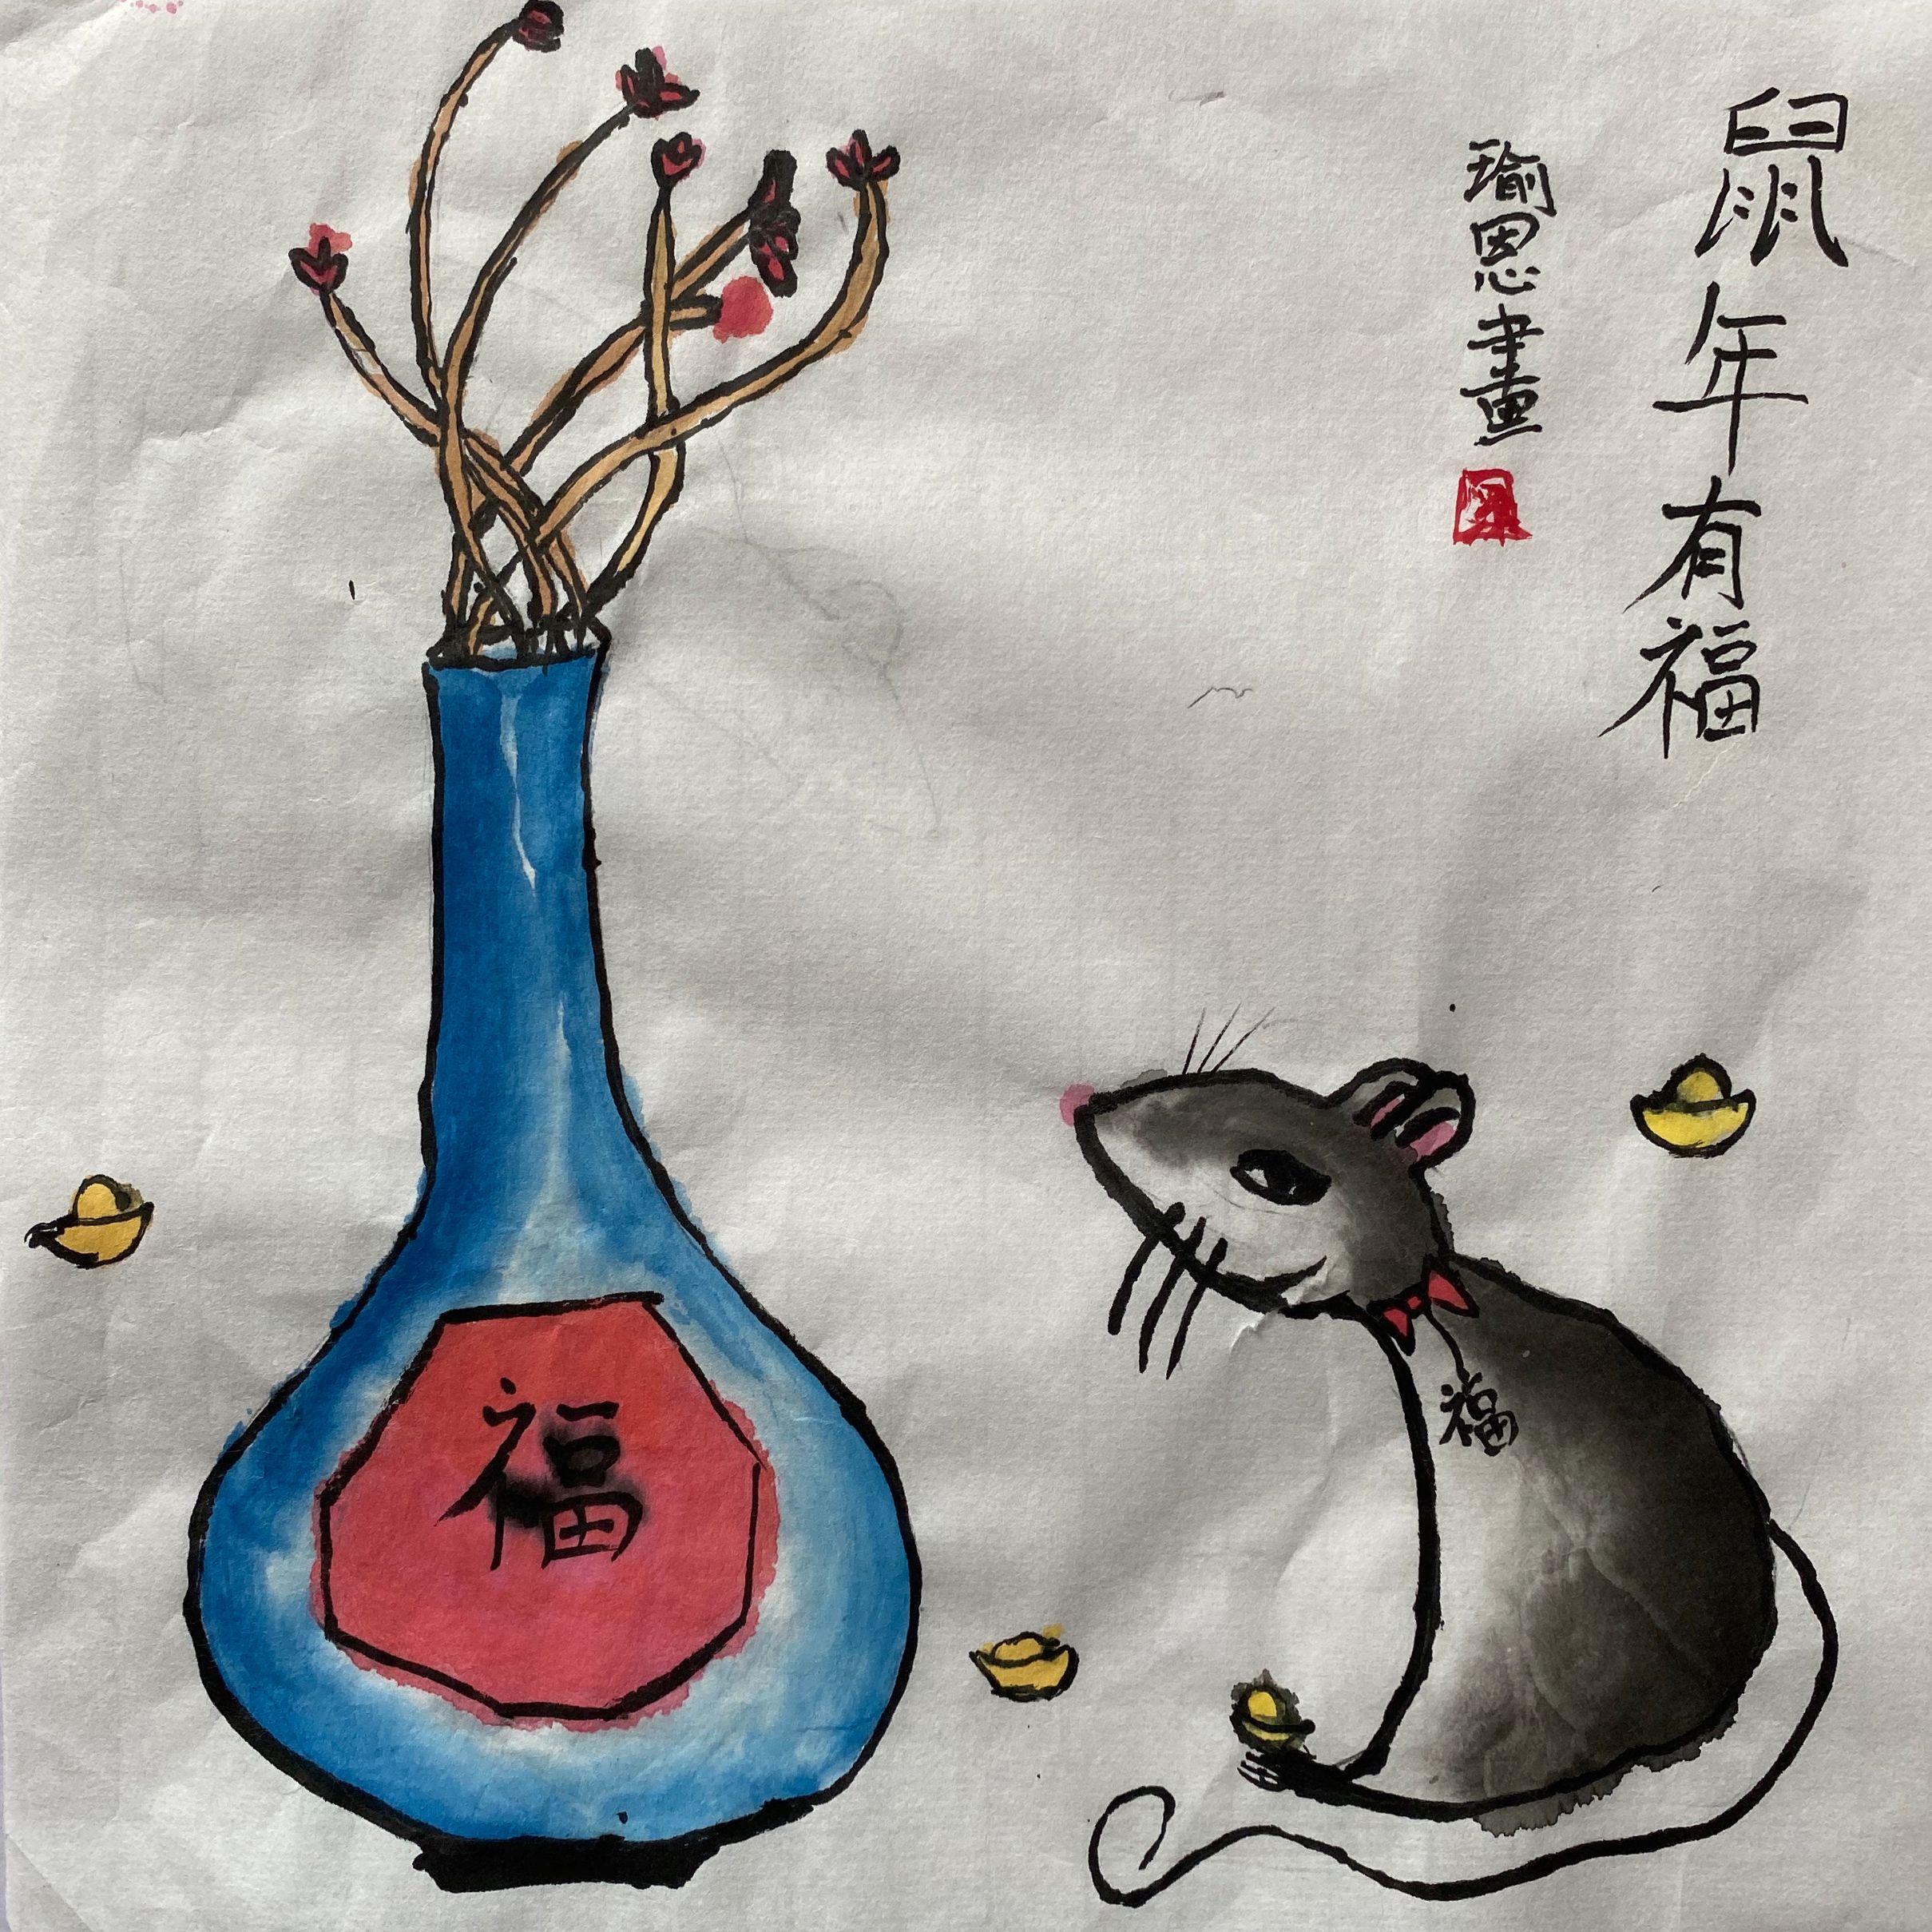 鼠年有福
瑜恩畫
福
福